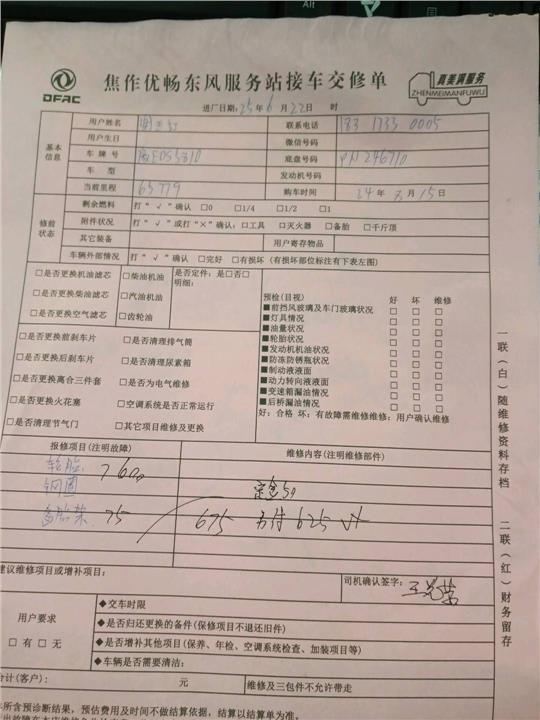 Alt
DFAC
焦作优畅东风服务站接车交修单
真美满服务
ZHENMEIMANFUWU
进厂日期: 25年 6 月 22日 时
基本信息
用户姓名
联系电话
0005
用户生日
微信号码
车 牌 号
底盘号码
246710
车 型
发动机号码
当前里程 65779
购车时间 24 年 月 15 日
修前状态
剩余燃料 打“√”确认 □0 □1/4 □1/2 □1
附件状况 打“√”或打“×”确认:□工具 □灭火器 □备胎 □千斤顶
其它装备
用户寄存物品
车辆外部情况 打“√”确认 □完好 □有损坏(有损坏部位标注有下表左图)
□是否更换机油滤芯 □柴油机油 是否定件:是□否□
明细:
□是否更换柴油滤芯 □汽油机油
□是否更换空气滤芯 □齿轮油
□是否更换前刹车片 □是否清理排气筒
□是否更换后刹车片 □是否清理尿素箱
□是否更换离合三件套 □是否为电气维修
□是否更换火花塞 □空调系统是否正常运行
□是否清理节气门 □其它项目维修及更换
预检(目视) 好 坏 维修
■前挡风玻璃及车门玻璃状况 □ □ □
■灯具情况 □ □ □
■油量状况 □ □ □
■轮胎状况 □ □ □
■发动机机油状况 □ □ □
■防冻防锈瓶状况 □ □ □
■制动液液面 □ □ □
■动力转向液液面 □ □ □
■变速箱漏油情况 □ □ □
■后桥漏油情况 □ □ □
好:合格 坏:有故障需维修维修:用户确认维修
报修项目(注明故障) 维修内容(注明维修部件)
轮胎 600
钢圈 定金50
备胎架 75 675 另付625
建议维修项目或增补项目:
司机确认签字:
用户要求
□ 有 □ 无
◆交车时限
◆是否归还更换的备件(保修项目不退还旧件)
◆是否增补其他项目(保养、年检、空调系统检查、加装项目等)
◆车辆是否需要清洁:
合计(客户): 元 维修及三包件不允许带走
所含预诊断结果,预估费用及时间不做结算依据,结算以结算单为准。
一联(白)随维修资料存档
二联(红)财务留存